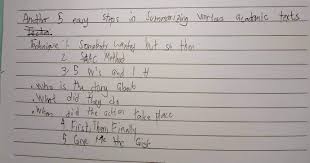 Another 5 easy steps in Summarizing various academic texts
Texts.
Technique 1. Somebody wanted but so then
2. SAAC Method
3. 5 W's and 1 H
. Who is the story About
. What did they do
. When did the action take place
4. First, Then, Finally
5. Give Me the Gist